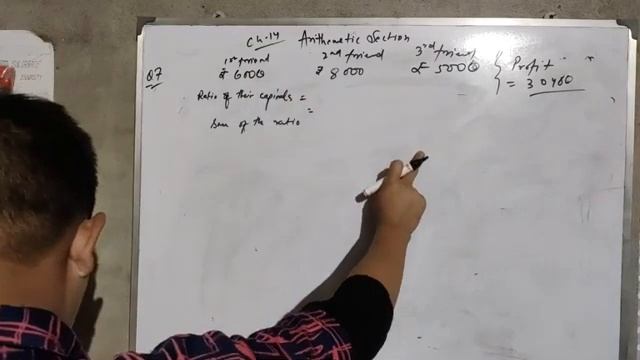 Ch-14 Arithmetic Section
1st friend 2nd friend 3rd friend
Q7 ₹ 6000 ₹ 8000 ₹ 5000 } Profit = 30400
Ratio of their capitals =
Sum of the ratio =